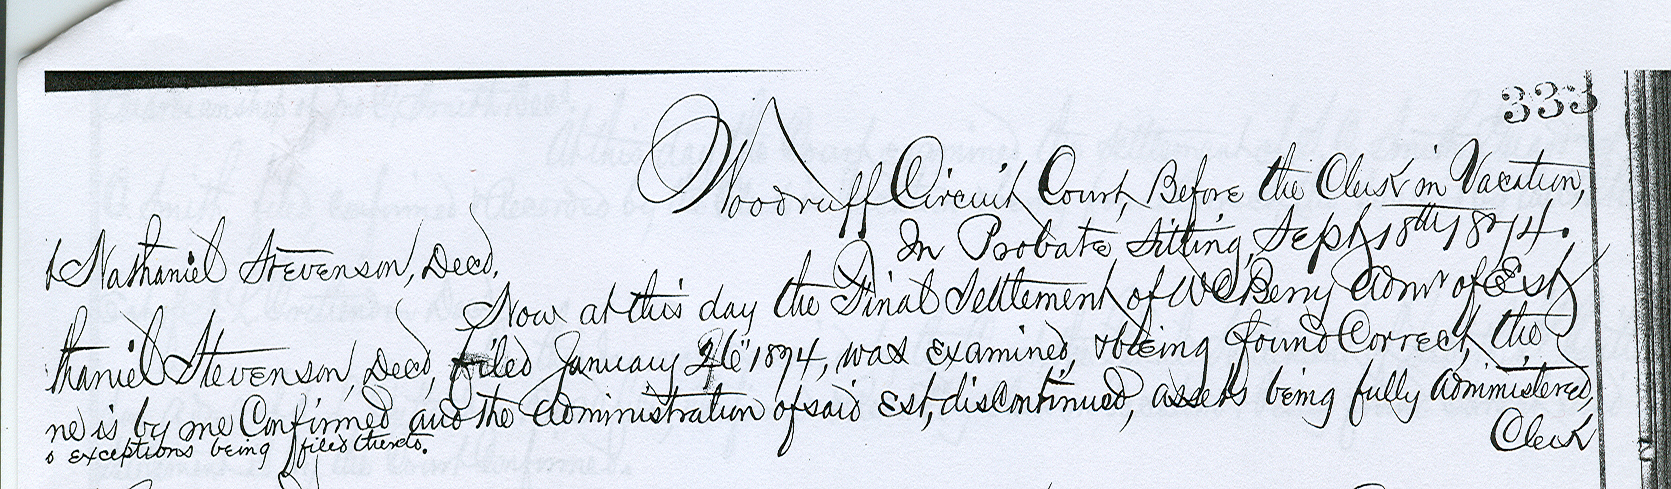 333
Woodruff Circuit Court, Before the Clerk in Vacation,
In Probate, Sitting, Sept 18th 1894.
t Nathaniel Stevenson, Decd.
Now at this day the Final Settlement of W C Berry Admr of Est
thaniel Stevenson, Decd, filed January 26" 1894, was examined, & being found Correct, the
me is by me Confirmed and the Administration of said Est, discontinued, assets being fully administered,
o exceptions being filed thereto.
Clerk